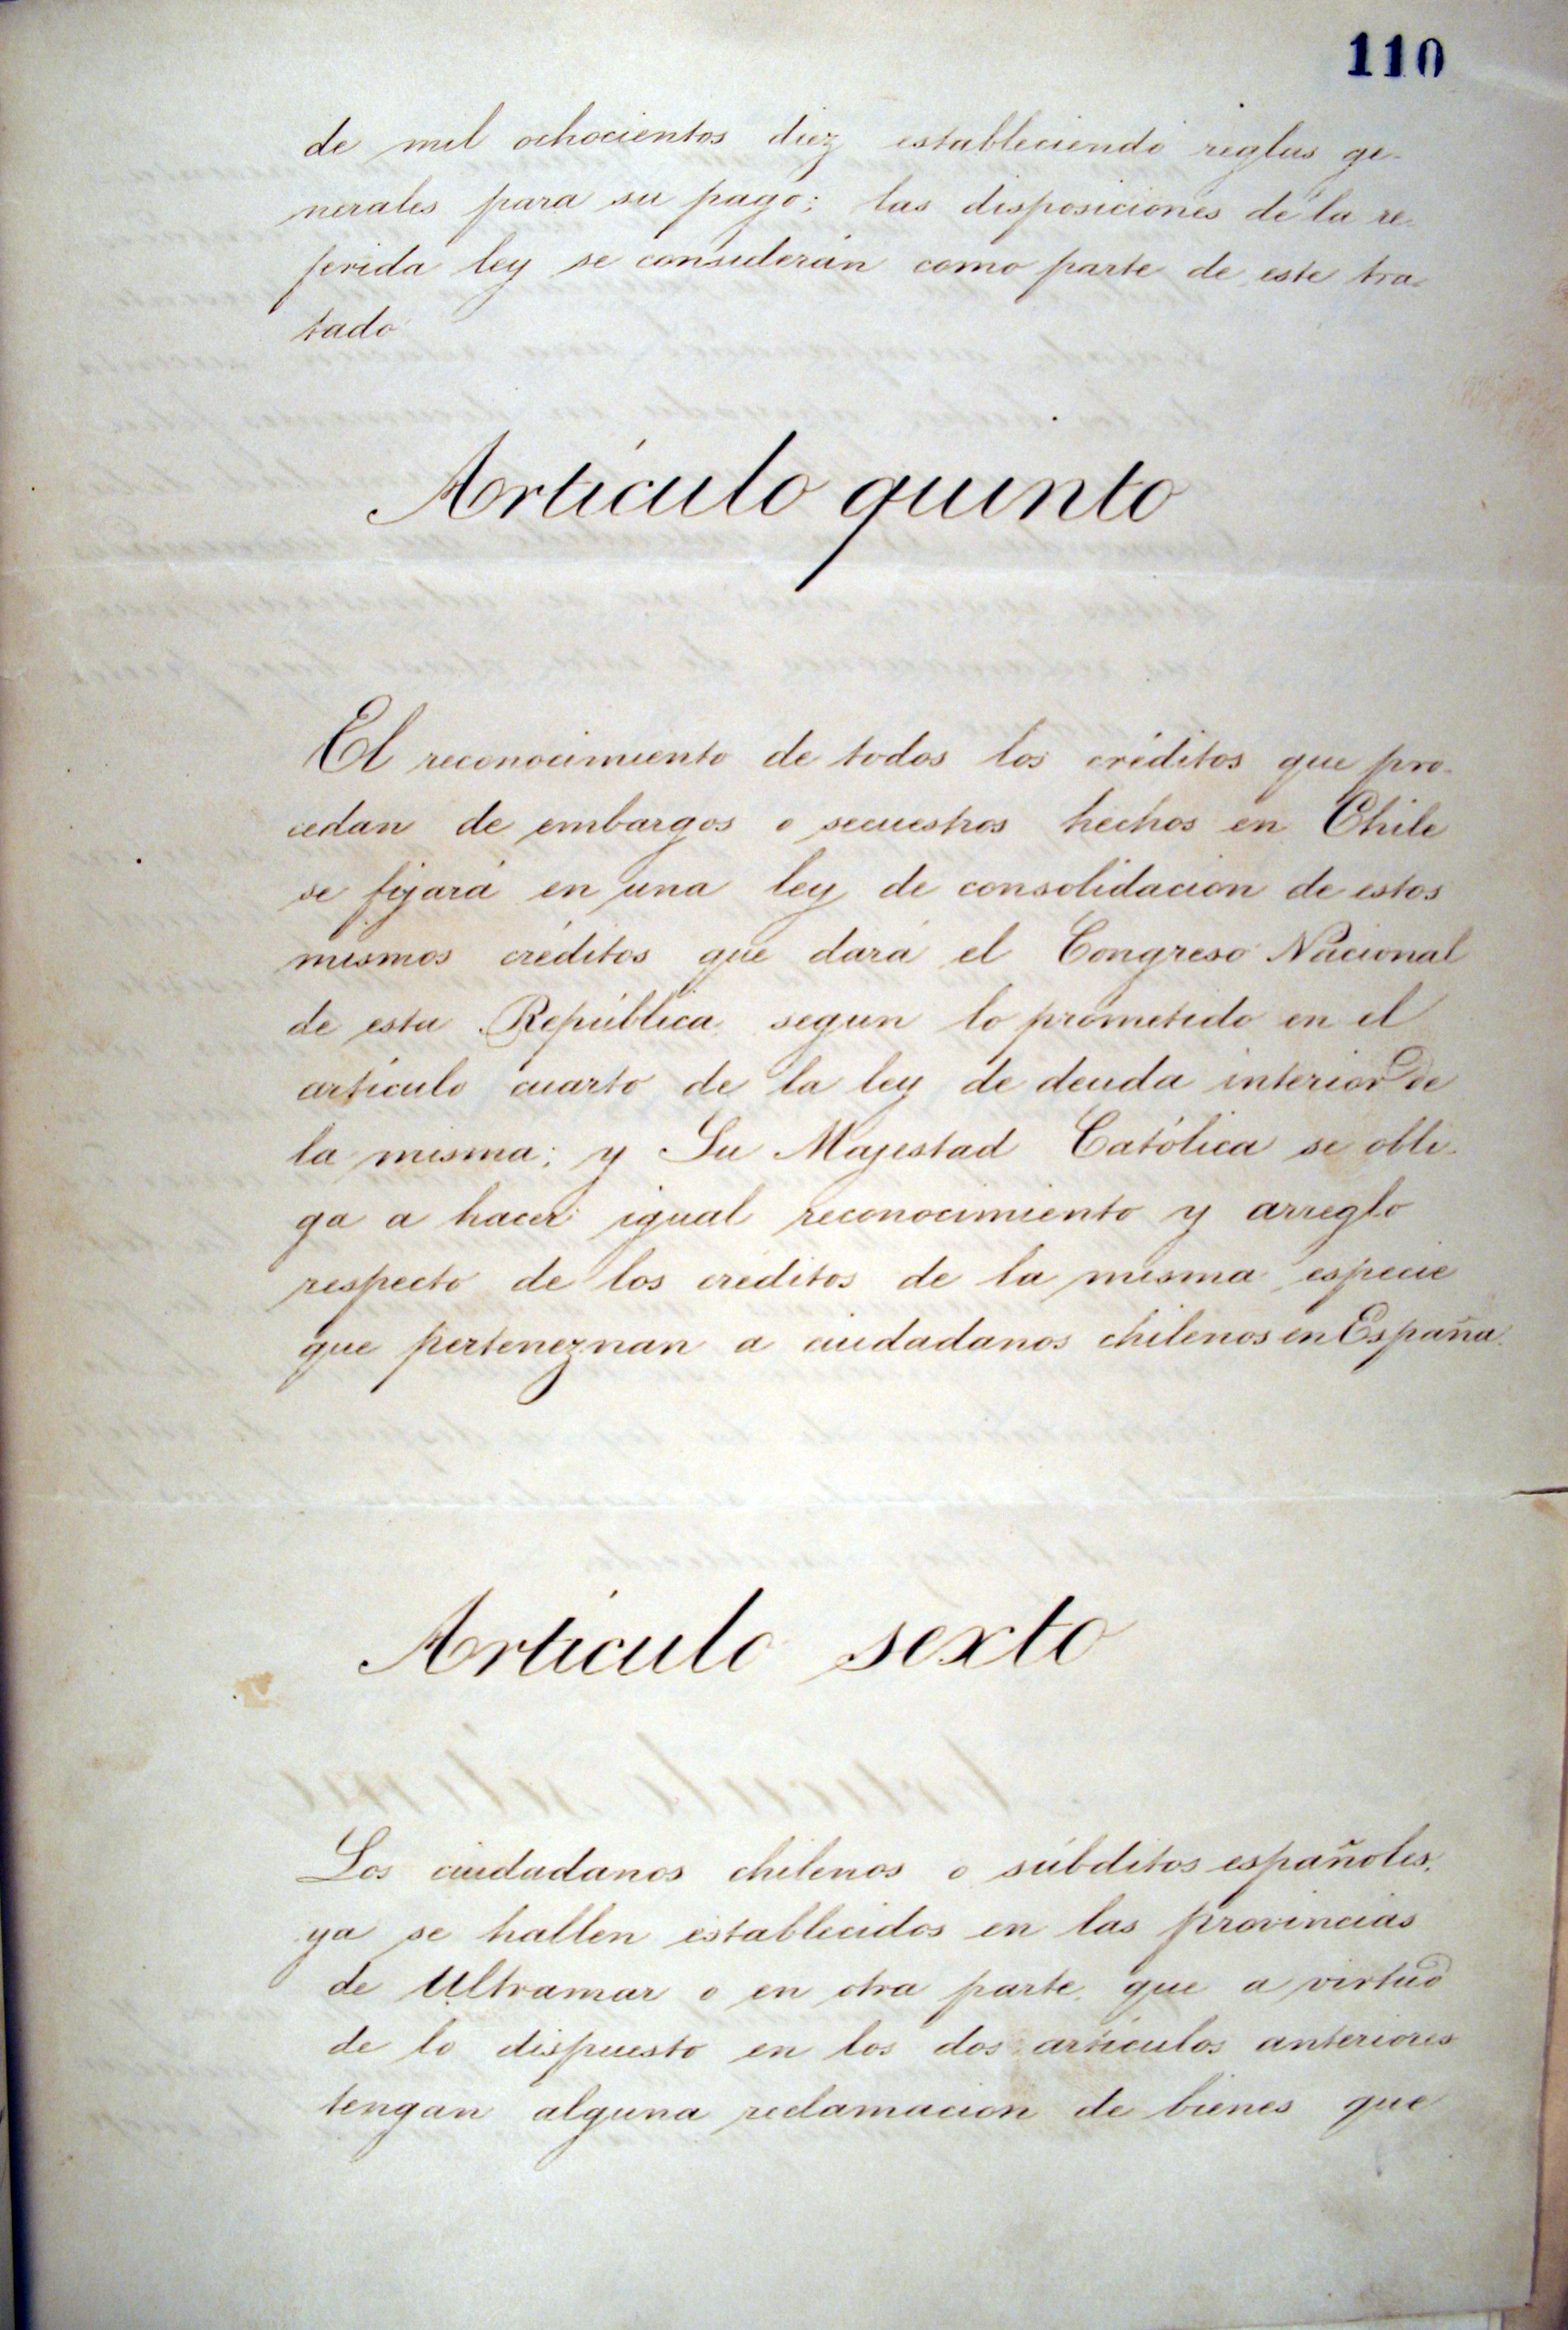 110
de mil ochocientos diez estableciendo reglas ge-
nerales para su pago; las disposiciones de la re-
ferida ley se considerán como parte de este tra-
tado
Artículo quinto
El reconocimiento de todos los créditos que pro-
cedan de embargos o secuestros hechos en Chile
se fijará en una ley de consolidacion de estos
mismos créditos que dará el Congreso Nacional
de esta República segun lo prometido en el
artículo cuarto de la ley de deuda interior de
la misma; y Su Majestad Católica se obli-
ga a hacer igual reconocimiento y arreglo
respecto de los créditos de la misma especie
que perteneznan a ciudadanos chilenos en España.
Artículo sexto
Los ciudadanos chilenos o súbditos españoles,
ya se hallen establecidos en las provincias
de Ultramar o en otra parte, que a virtud
de lo dispuesto en los dos artículos anteriores
tengan alguna reclamacion de bienes que